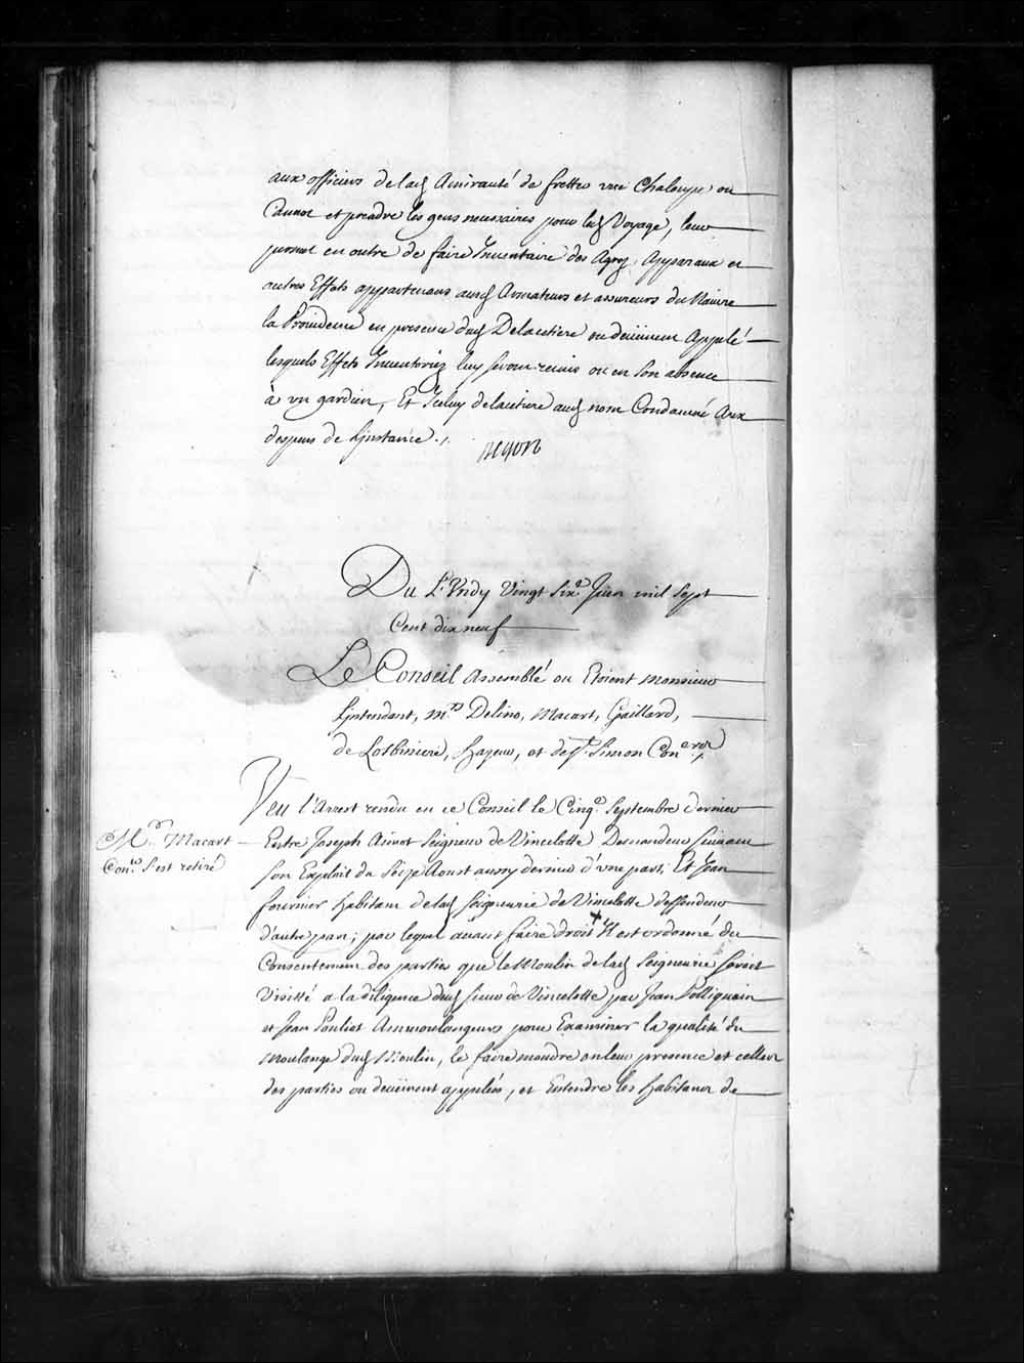 aux officiers de lad. Amirauté de fretter une Chaloupe ou
Cannot et prendre les gens necessaires pour led. Voyage, leur
permet en outre de faire Inventaire des Agrez, Apparaux et
autres Effets appartenans ausd. Armateurs et assureurs du Navire
la Providence en presence dud. Delacetiere ou deüement Appelé
lesquels Effets Inventoriez luy seront remis ou en Son absence
à un gardien, Et Iceluy delacetiere aud. nom Condamné Aux
despens de L'instance ./.
BEGON
Du Lundy Vingt Six.e Juin mil Sept
Cent dix neuf
Le Conseil Assemblé ou Etoient Monsieur
L'intendant, M.rs Delino, Macart, Gaillard,
de Lotbiniere, hazeur, et de St. Simon Con.ers
Veu l'Arrest rendu en ce Conseil le Cinq.e Septembre dernier
M.r Macart
Con.er S'est retiré
Entre Joseph Amiot Seigneur de Vincelotte Demandeur Suivant
Son Exploit du Seize Aoust aussy dernier d'une part; Et Jean
fournier habitant de lad. Seigneurie de Vincelotte deffendeur
d'autre part; par lequel avant faire droit Il est ordonné du
Consentement des parties que le Moulin de lad. Seigneurie Seroit
Visitté a la diligence dud. Sieur de Vincelotte par Jean Polliquain
et Jean Pouliot Ammoulangeurs pour Examiner la qualité du
Moulange dud. Moulin, le faire moudre en leur presence et celle
des parties ou deüement appelées, et Entendre les habitans de